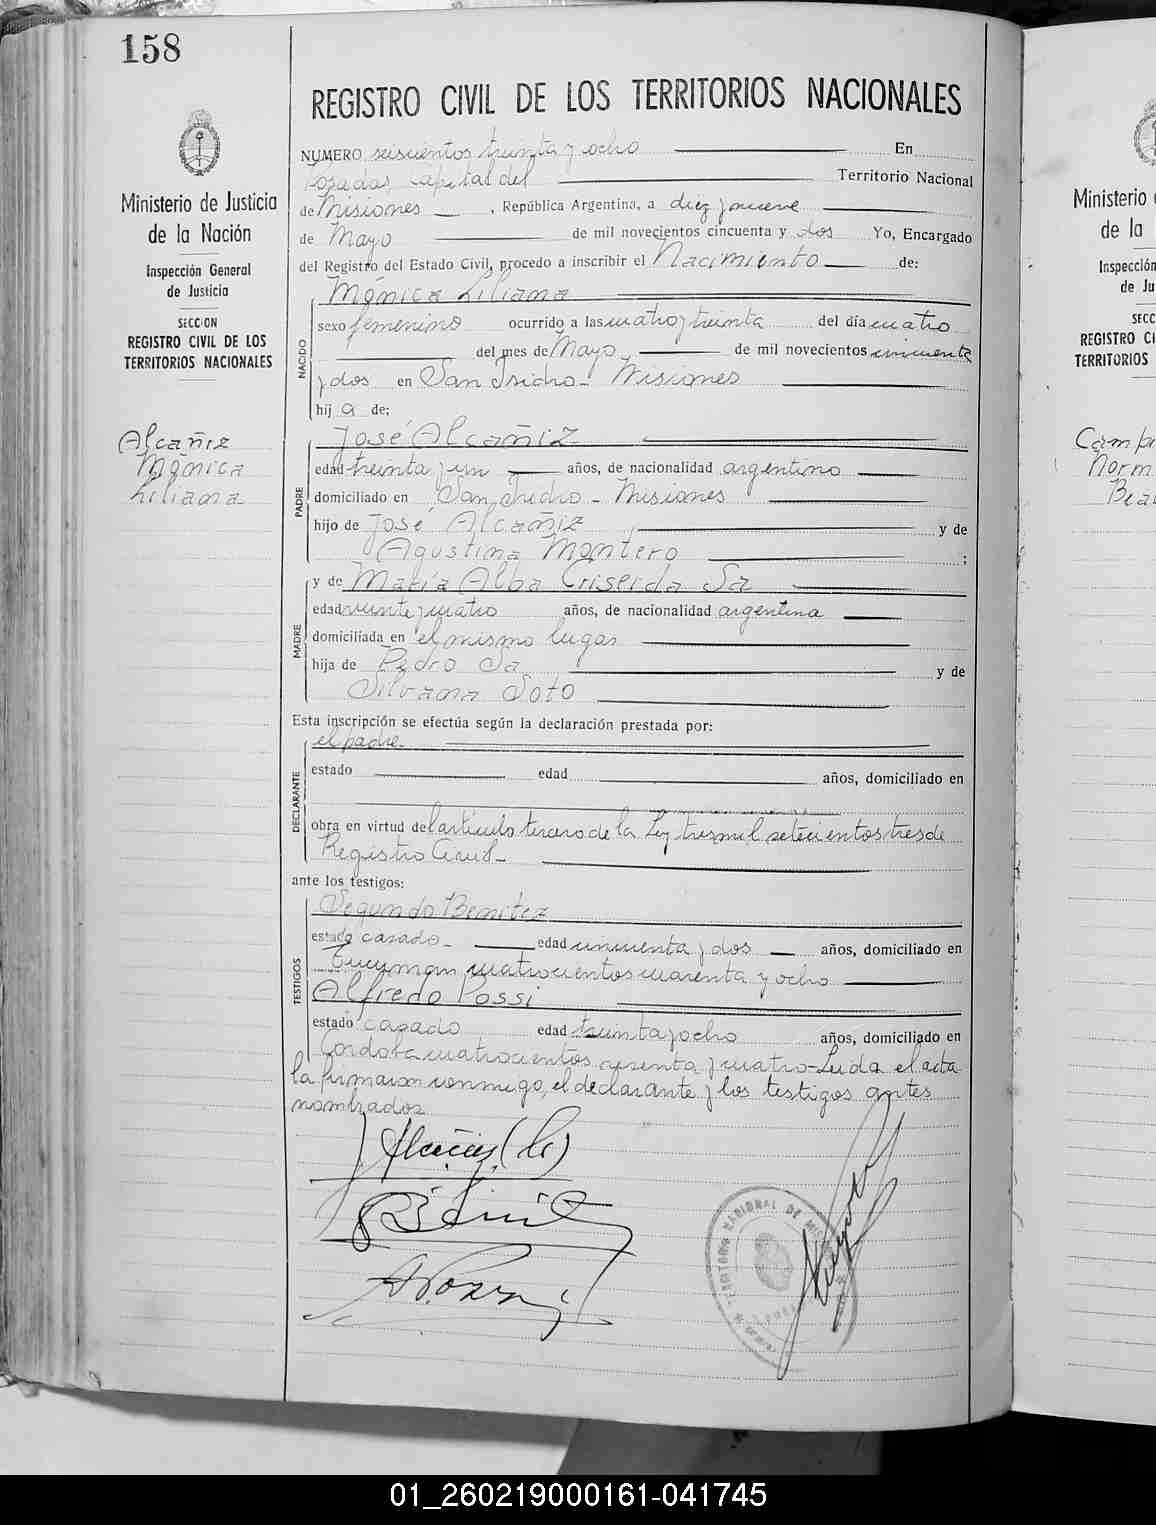 158
REGISTRO CIVIL DE LOS TERRITORIOS NACIONALES
Ministerio de Justicia
de la Nación
Inspección General
de Justicia
SECCION
REGISTRO CIVIL DE LOS
TERRITORIOS NACIONALES
Alcañiz
Mónica
Liliana
NUMERO seiscientos treinta y ocho En
Posadas capital del Territorio Nacional
de Misiones, República Argentina, a diez y nueve
de Mayo de mil novecientos cincuenta y dos Yo, Encargado
del Registro del Estado Civil, procedo a inscribir el Nacimiento de:
NACIDO
Mónica Liliana
sexo femenino ocurrido a las cuatro y treinta del día cuatro
del mes de Mayo de mil novecientos cincuenta
y dos en San Isidro - Misiones
hij a de;
PADRE
José Alcañiz
edad treinta y un años, de nacionalidad argentino
domiciliado en San Isidro - Misiones
hijo de José Alcañiz y de
Agustina Montero ;
MADRE
y de María Alba Criselda Sa
edad veinte y cuatro años, de nacionalidad argentina
domiciliada en el mismo lugar
hija de Pedro Sa y de
Silvana Soto
Esta inscripción se efectúa según la declaración prestada por:
DECLARANTE
el padre.
estado edad años, domiciliado en
obra en virtud del artículo tercero de la Ley tres mil setecientos tres de
Registro Civil -
ante los testigos:
TESTIGOS
Segundo Benitez
estado casado - edad cincuenta y dos años, domiciliado en
Tucuman cuatrocientos cuarenta y ocho
Alfredo Possi
estado casado edad treinta y ocho años, domiciliado en
Cordoba cuatrocientos y cuatro - Leida el acta
la firmaron conmigo, el declarante y los testigos antes
nombrados
J. Alcañiz (h)
TERRITORIO NACIONAL DE
Ministerio
de la
Inspección
de Ju
SECC
REGISTRO CI
TERRITORIOS
Norm
01_260219000161-041745